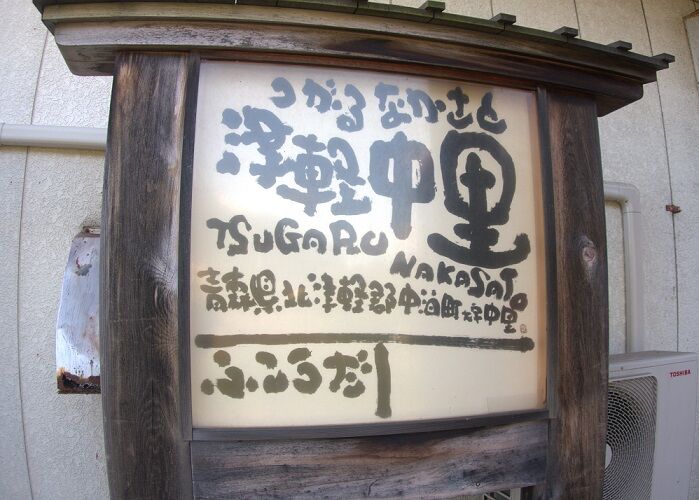 つがるなかさと
津軽中里
TSUGARU
NAKASATO
青森県北津軽郡中泊町大字中里
ふこうだ
TOSHIBA